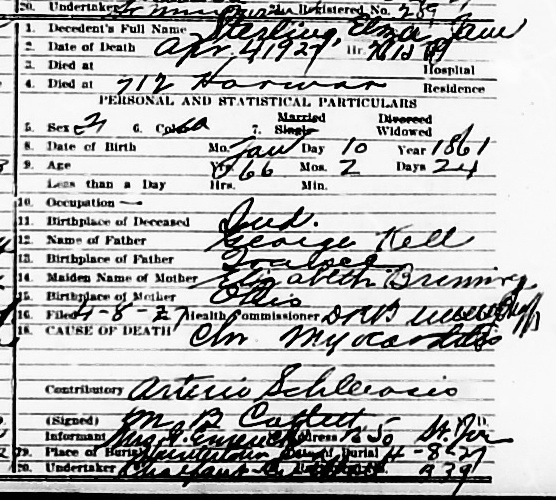 20. Undertaker Registered No. 289
1. Decedent's Full Name Sterling, Eliza Jane
2. Date of Death Apr. 4, 1927 Hr.
3. Died at Hospital
4. Died at 712 Residence
PERSONAL AND STATISTICAL PARTICULARS
5. Sex 6. Color 7. Married Single Divorced Widowed
8. Date of Birth Mo. Jan Day 10 Year 1861
9. Age Yrs. 66 Mos. 2 Days 24
Less than a Day Hrs. Min.
10. Occupation —
11. Birthplace of Deceased Ind.
12. Name of Father George Kell
13. Birthplace of Father
14. Maiden Name of Mother Elizabeth
15. Birthplace of Mother Ohio
16. Filed 4-8-27 Health Commissioner
18. CAUSE OF DEATH Chr Myocarditis
Contributory Arterio Schlerosis
(Signed) M. B. Catlett M.D.
Informant Mrs. Address
19. Place of Burial Date of Burial 4-8-27
20. Undertaker 939